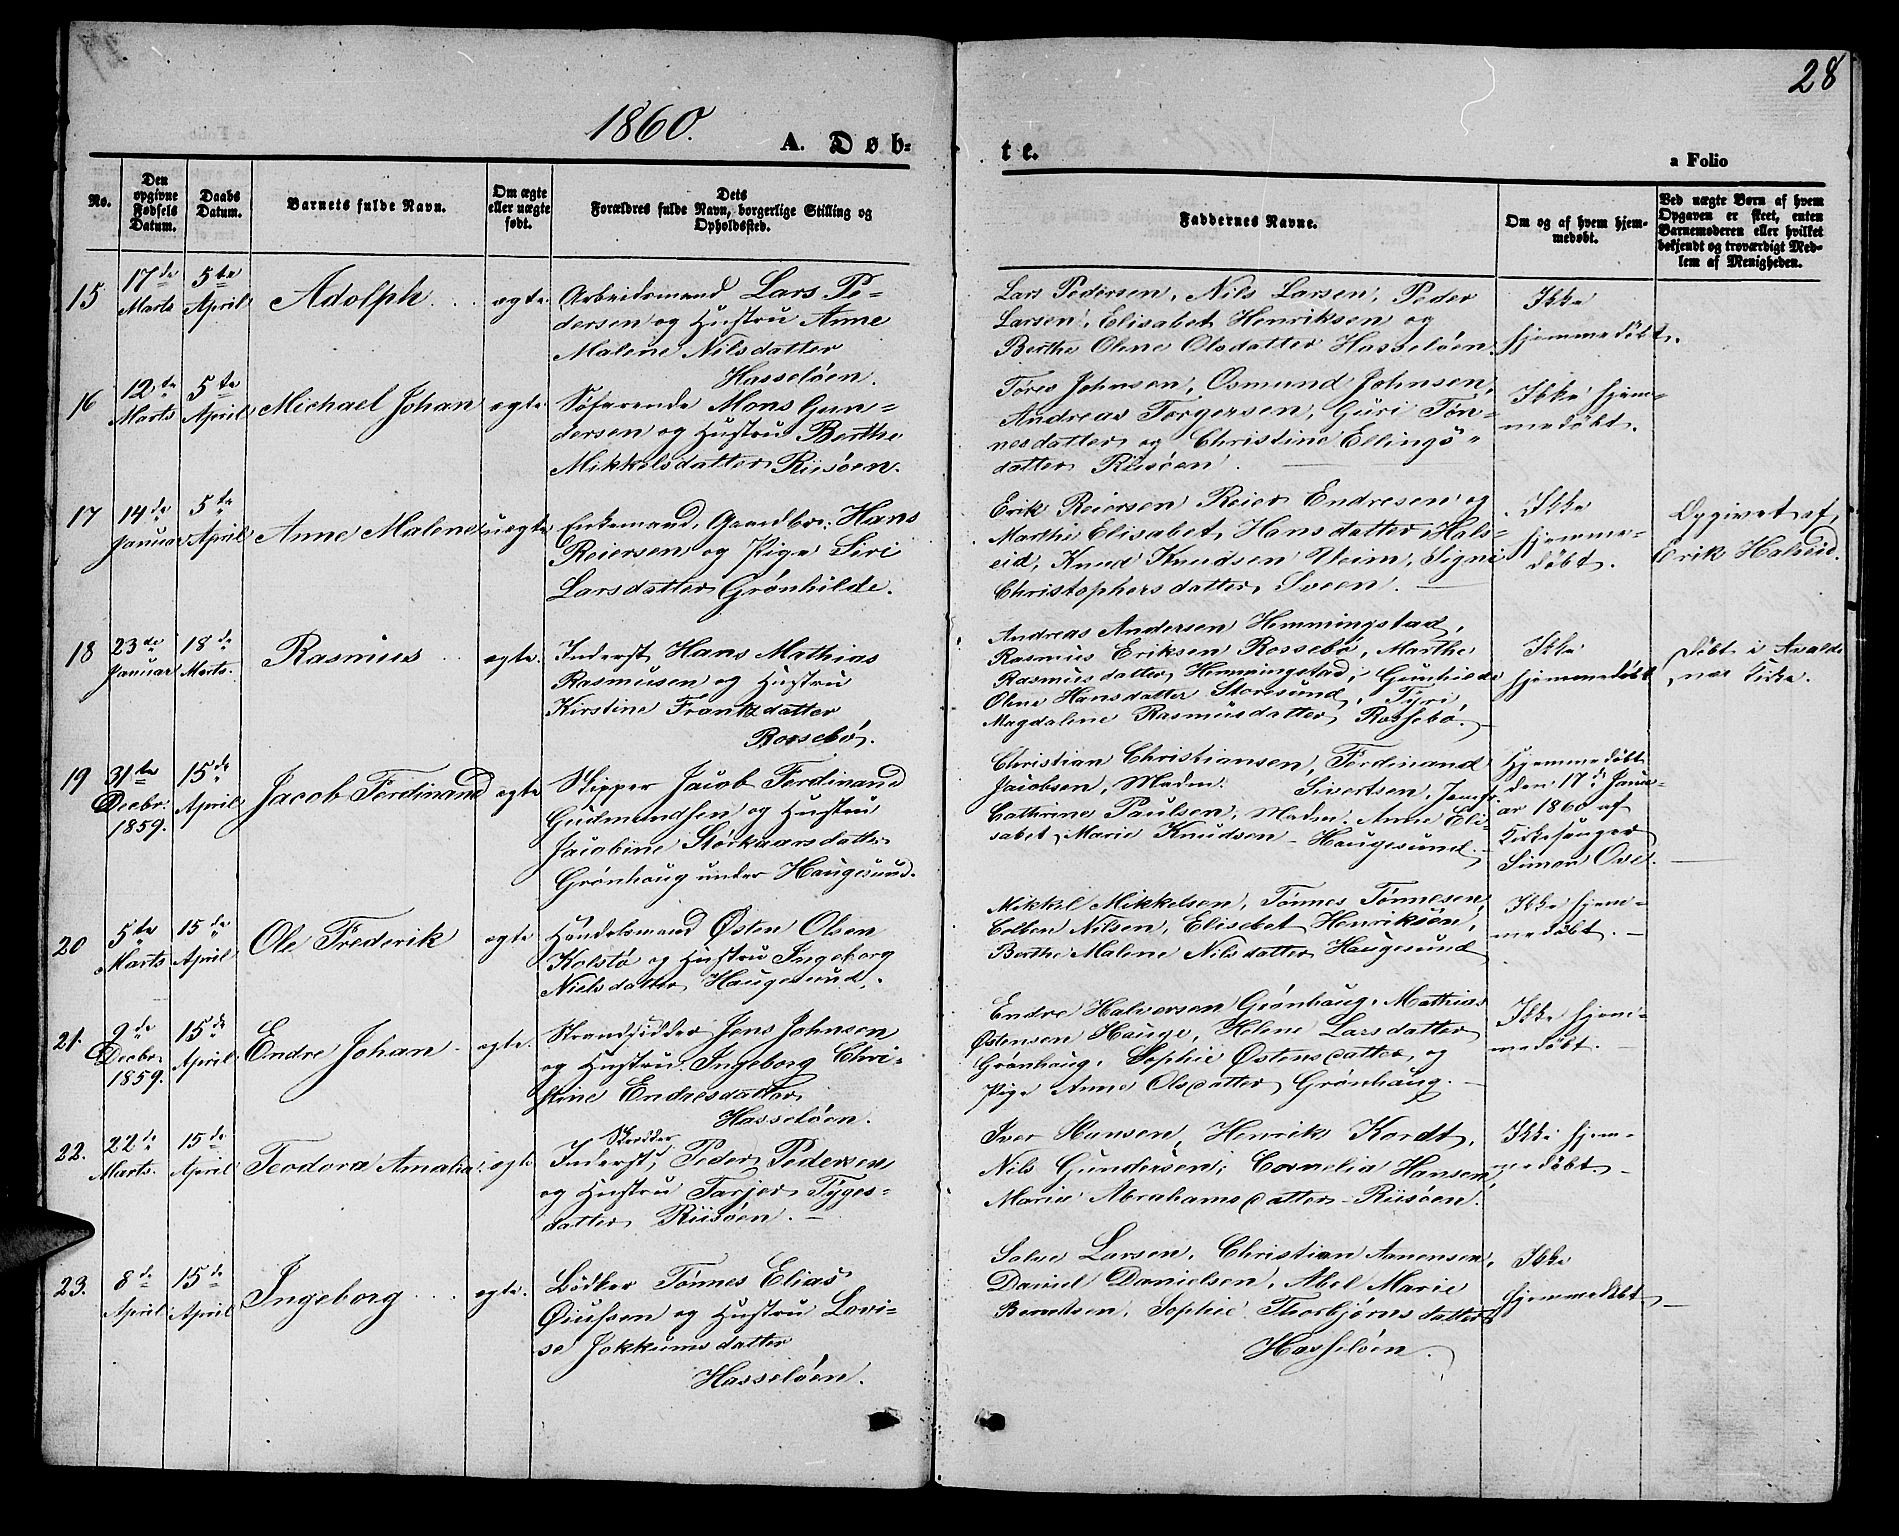 28
1860.
A. Døb-
te.
a Folio
No.
Den opgivne Fødsels Datum.
Daabs Datum.
Barnets fulde Navn.
Om ægte eller uægte født.
Dets Forældres fulde Navn, borgerlige Stilling og Opholdssted.
Faddernes Navne.
Om og af hvem hjemmedøbt.
Ved uægte Børn af hvem Opgaven er skeet, enten Barnemoderen eller hvilket bekjendt og troværdigt Medlem af Menigheden.
15
17de Marts
5te April
Adolph
ægte
Arbeidsmand Lars Pe-
dersen og Hustru Anne
Malene Nilsdatter
Hasseløen.
Lars Pedersen, Nils Larsen, Peder
Larsen, Elisabet Henriksen og
Berthe Olene Olsdatter Hasseløen.
Ikke
hjemmedøbt.
16
12te Marts
5te April
Michael Johan
ægte
Søfarende Mons Gun-
dersen og Hustru Berthe
Mikkelsdatter Riisøen.
Tøres Johnsen, Osmund Johnsen,
Andreas Torgersen, Guri Tøn-
nesdatter og Christine Ellings-
datter Riisøen.
Ikke hjem-
medøbt.
17
14de Januar
5te April
Anne Malene
uægte
Enkemand, Gaardbr. Hans
Reiersen og Pige Siri
Larsdatter Grønhilde.
Erik Reiersen Reier Endresen og
Marthe Elisabet Hansdatter Hals-
eid, Knud Knudsen Veim, Signi
Christophersdatter Sveen.
Ikke
hjemme-
døbt.
Opgivet af
Erik Halseid.
18
23de Januar
18de Marts.
Rasmus
ægte.
Inderst Hans Mathias
Rasmusen og Hustru
Kirstine Frantzdatter
Rossebø.
Andreas Andersen Hemmingstad,
Rasmus Eriksen Rossebø, Marthe
Rasmusdatter Hemmingstad, Gunhilde
Olene Hansdatter Storesund, Tyri
Magdalene Rasmusdatter Rossebø.
Ikke
hjemmedøbt
Døbt i Avalds-
næs Kirke.
19
31te Decbr. 1859.
15de April
Jacob Ferdinand
ægte
Skipper Jacob Ferdinand
Gudmundsen og Hustru
Jacobine Størkaarsdatter
Grønhaug under Haugesund.
Christian Christiansen, Ferdinand
Jacobsen, Madm. Sivertsen, Jomfr.
Cathrine Paulsen, Madm. Anne Eli-
sabet Marie Knudsen - Haugesund.
Hjemmedøbt
den 17de Janu-
ar 1860 af
Kirkesanger
Simon Ose.
20
5te Marts
15de April
Ole Frederik
ægte
Handelsmand Østen Olsen
Kolstø og Hustru Ingeborg
Nielsdatter Haugesund.
Mikkel Mikkelsen, Tønnes Tønnesen,
Colben Nilsen, Elisebet Henriksen,
Berthe Malene Nilsdatter Haugesund
Ikke hjem-
medøbt.
21.
9de Decbr. 1859.
15de April
Endre Johan
ægte.
Strandsidder Jens Johnsen
og Hustru Ingeborg Chri-
stine Endresdatter
Hasseløen.
Endre Halversen Grønhaug, Mathias
Østensen Hauge, Helene Larsdatter
Grønhaug, Sophie Østensdatter, og
Pige Anne Olsdatter Grønhaug.
Ikke hjem-
medøbt.
22.
22de Marts.
15de April
Teodora Amalia
ægte
Skrædder
Inderst, Peder Pedersen
og Hustru Tarjer Tyges-
datter Riisøen.
Iver Hansen, Henrik Kordt,
Nils Gundersen, Cornelia Hansen,
Marie Abrahamsdatter - Riisøen.
Ikke hjem-
medøbt.
23.
8de April
15de April
Ingeborg
ægte.
Bødker Tønnes Elias
Øiufsen og Hustru Lovi-
se Jokkumsdatter
Hasseløen.
Salve Larsen, Christian Aanensen,
Daniel Danielsen, Abel Marie
Berentsen, Sophie Thorbjørnsdatter
Hasseløen.
Ikke
hjemmedøbt